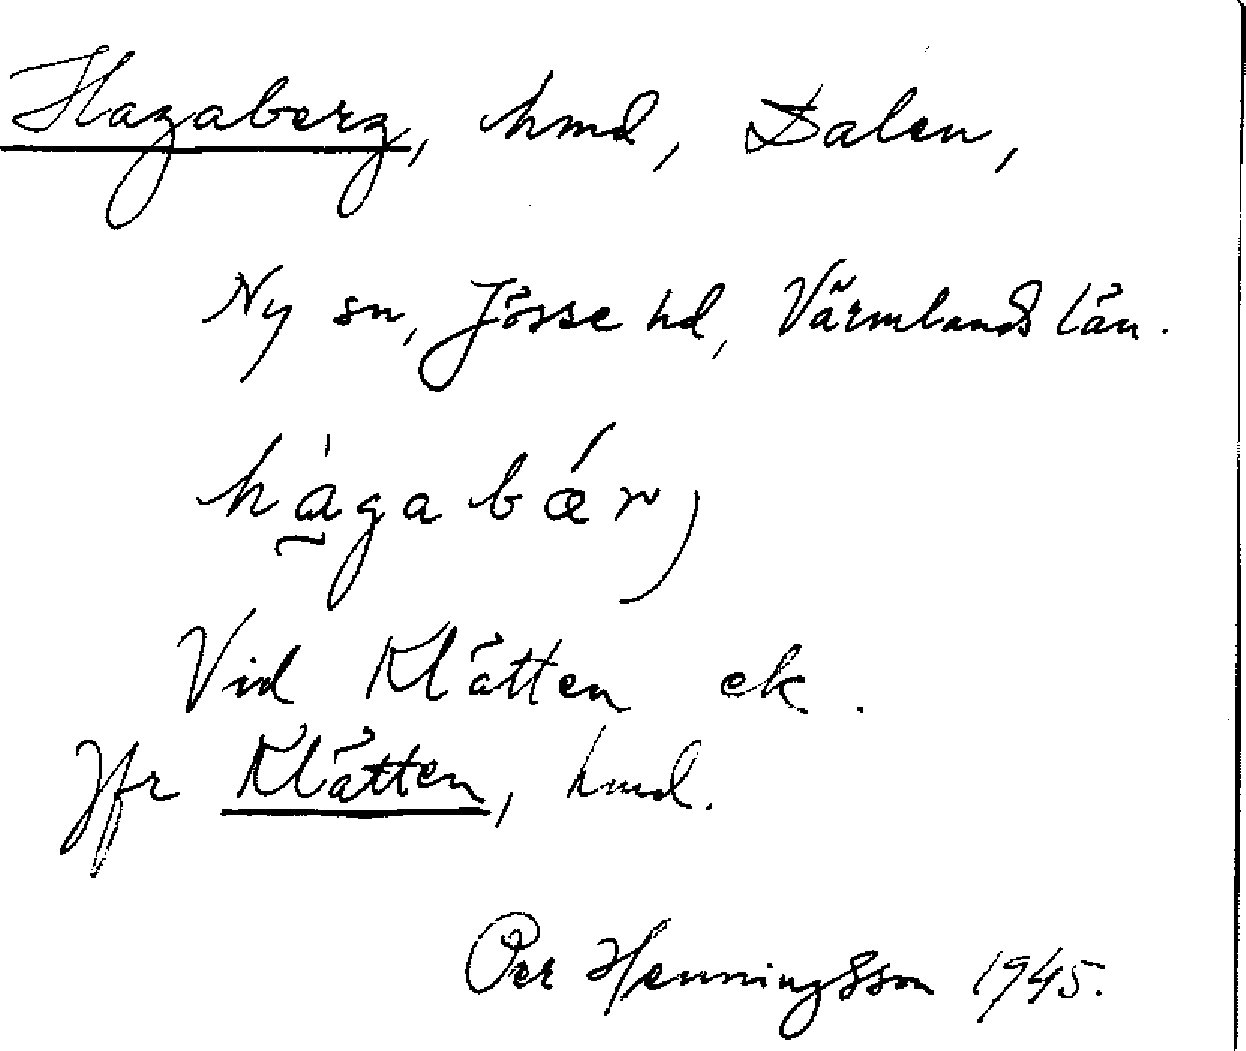 Hagaberg, hmd, Dalen,
Ny sn, Jösse hd, Värmlands län.
hàgabǽr,
Vid Klätten ek.
Jfr Klätten, hmd.
Per Henningsson 1945.